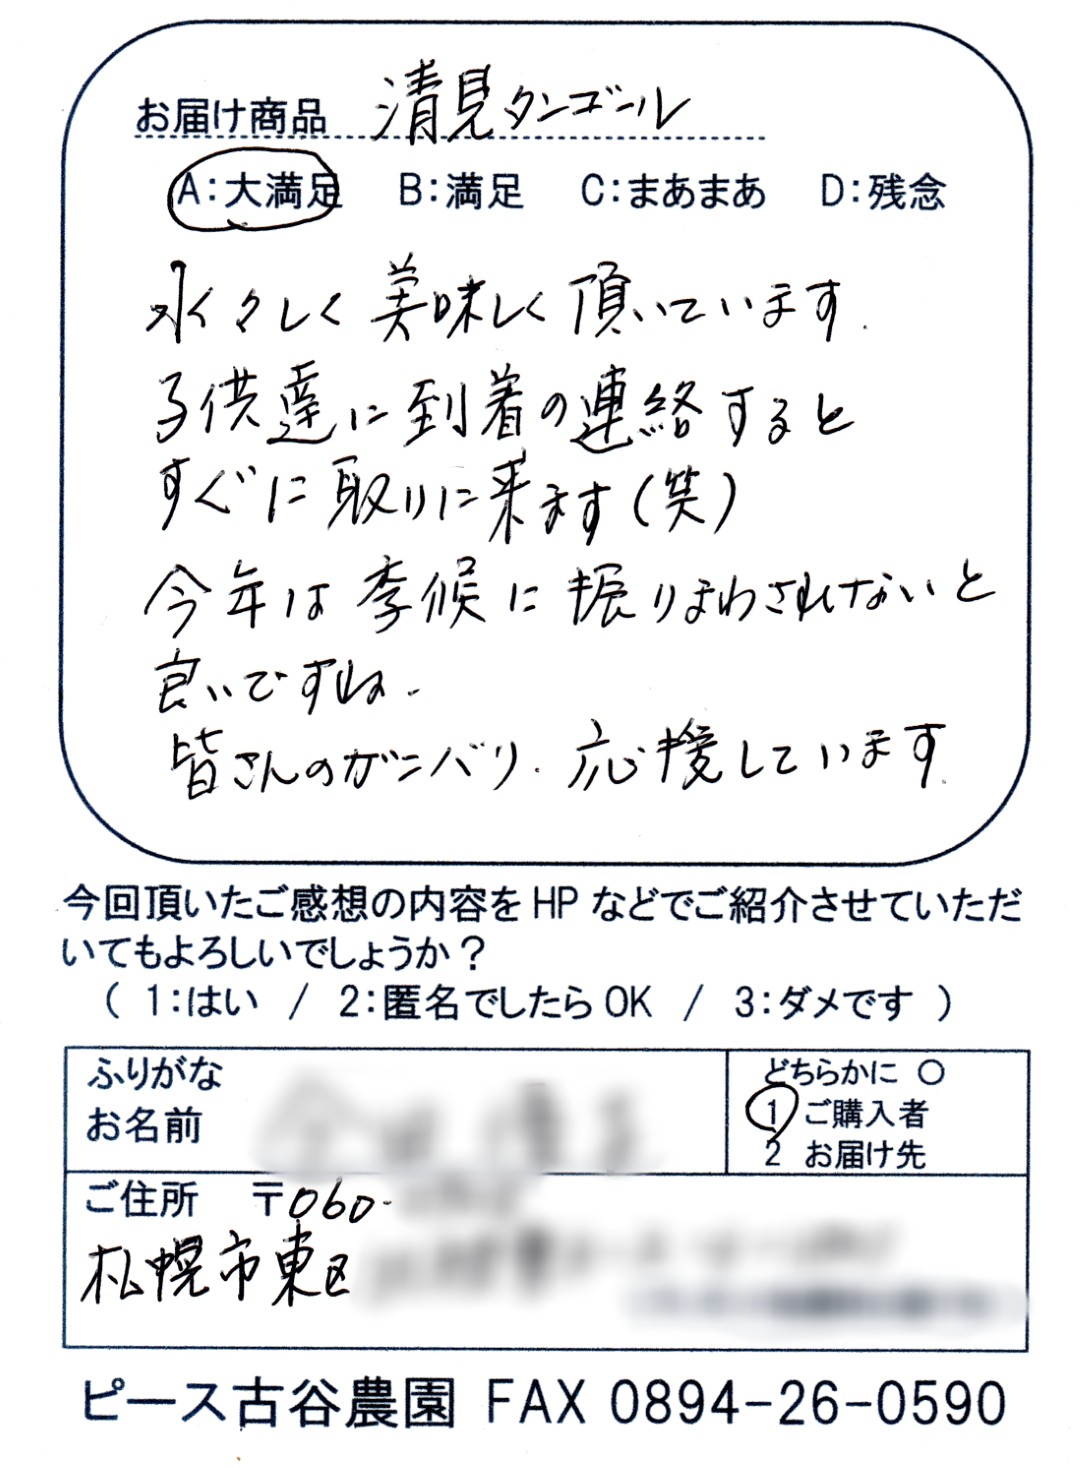 お届け商品 清見タンゴール
A:大満足 B:満足 C:まあまあ D:残念
水々しく美味しく頂いています.
子供達に到着の連絡すると
すぐに取りに来ます(笑)
今年は季候に振りまわされないと
良いですね.
皆さんのガンバリ.応援しています.
今回頂いたご感想の内容をHPなどでご紹介させていただ
いてもよろしいでしょうか?
( 1:はい / 2:匿名でしたらOK / 3:ダメです )
ふりがな
お名前
どちらかに ○
1 ご購入者
2 お届け先
ご住所 〒060-
札幌市東区
ピース古谷農園 FAX 0894-26-0590